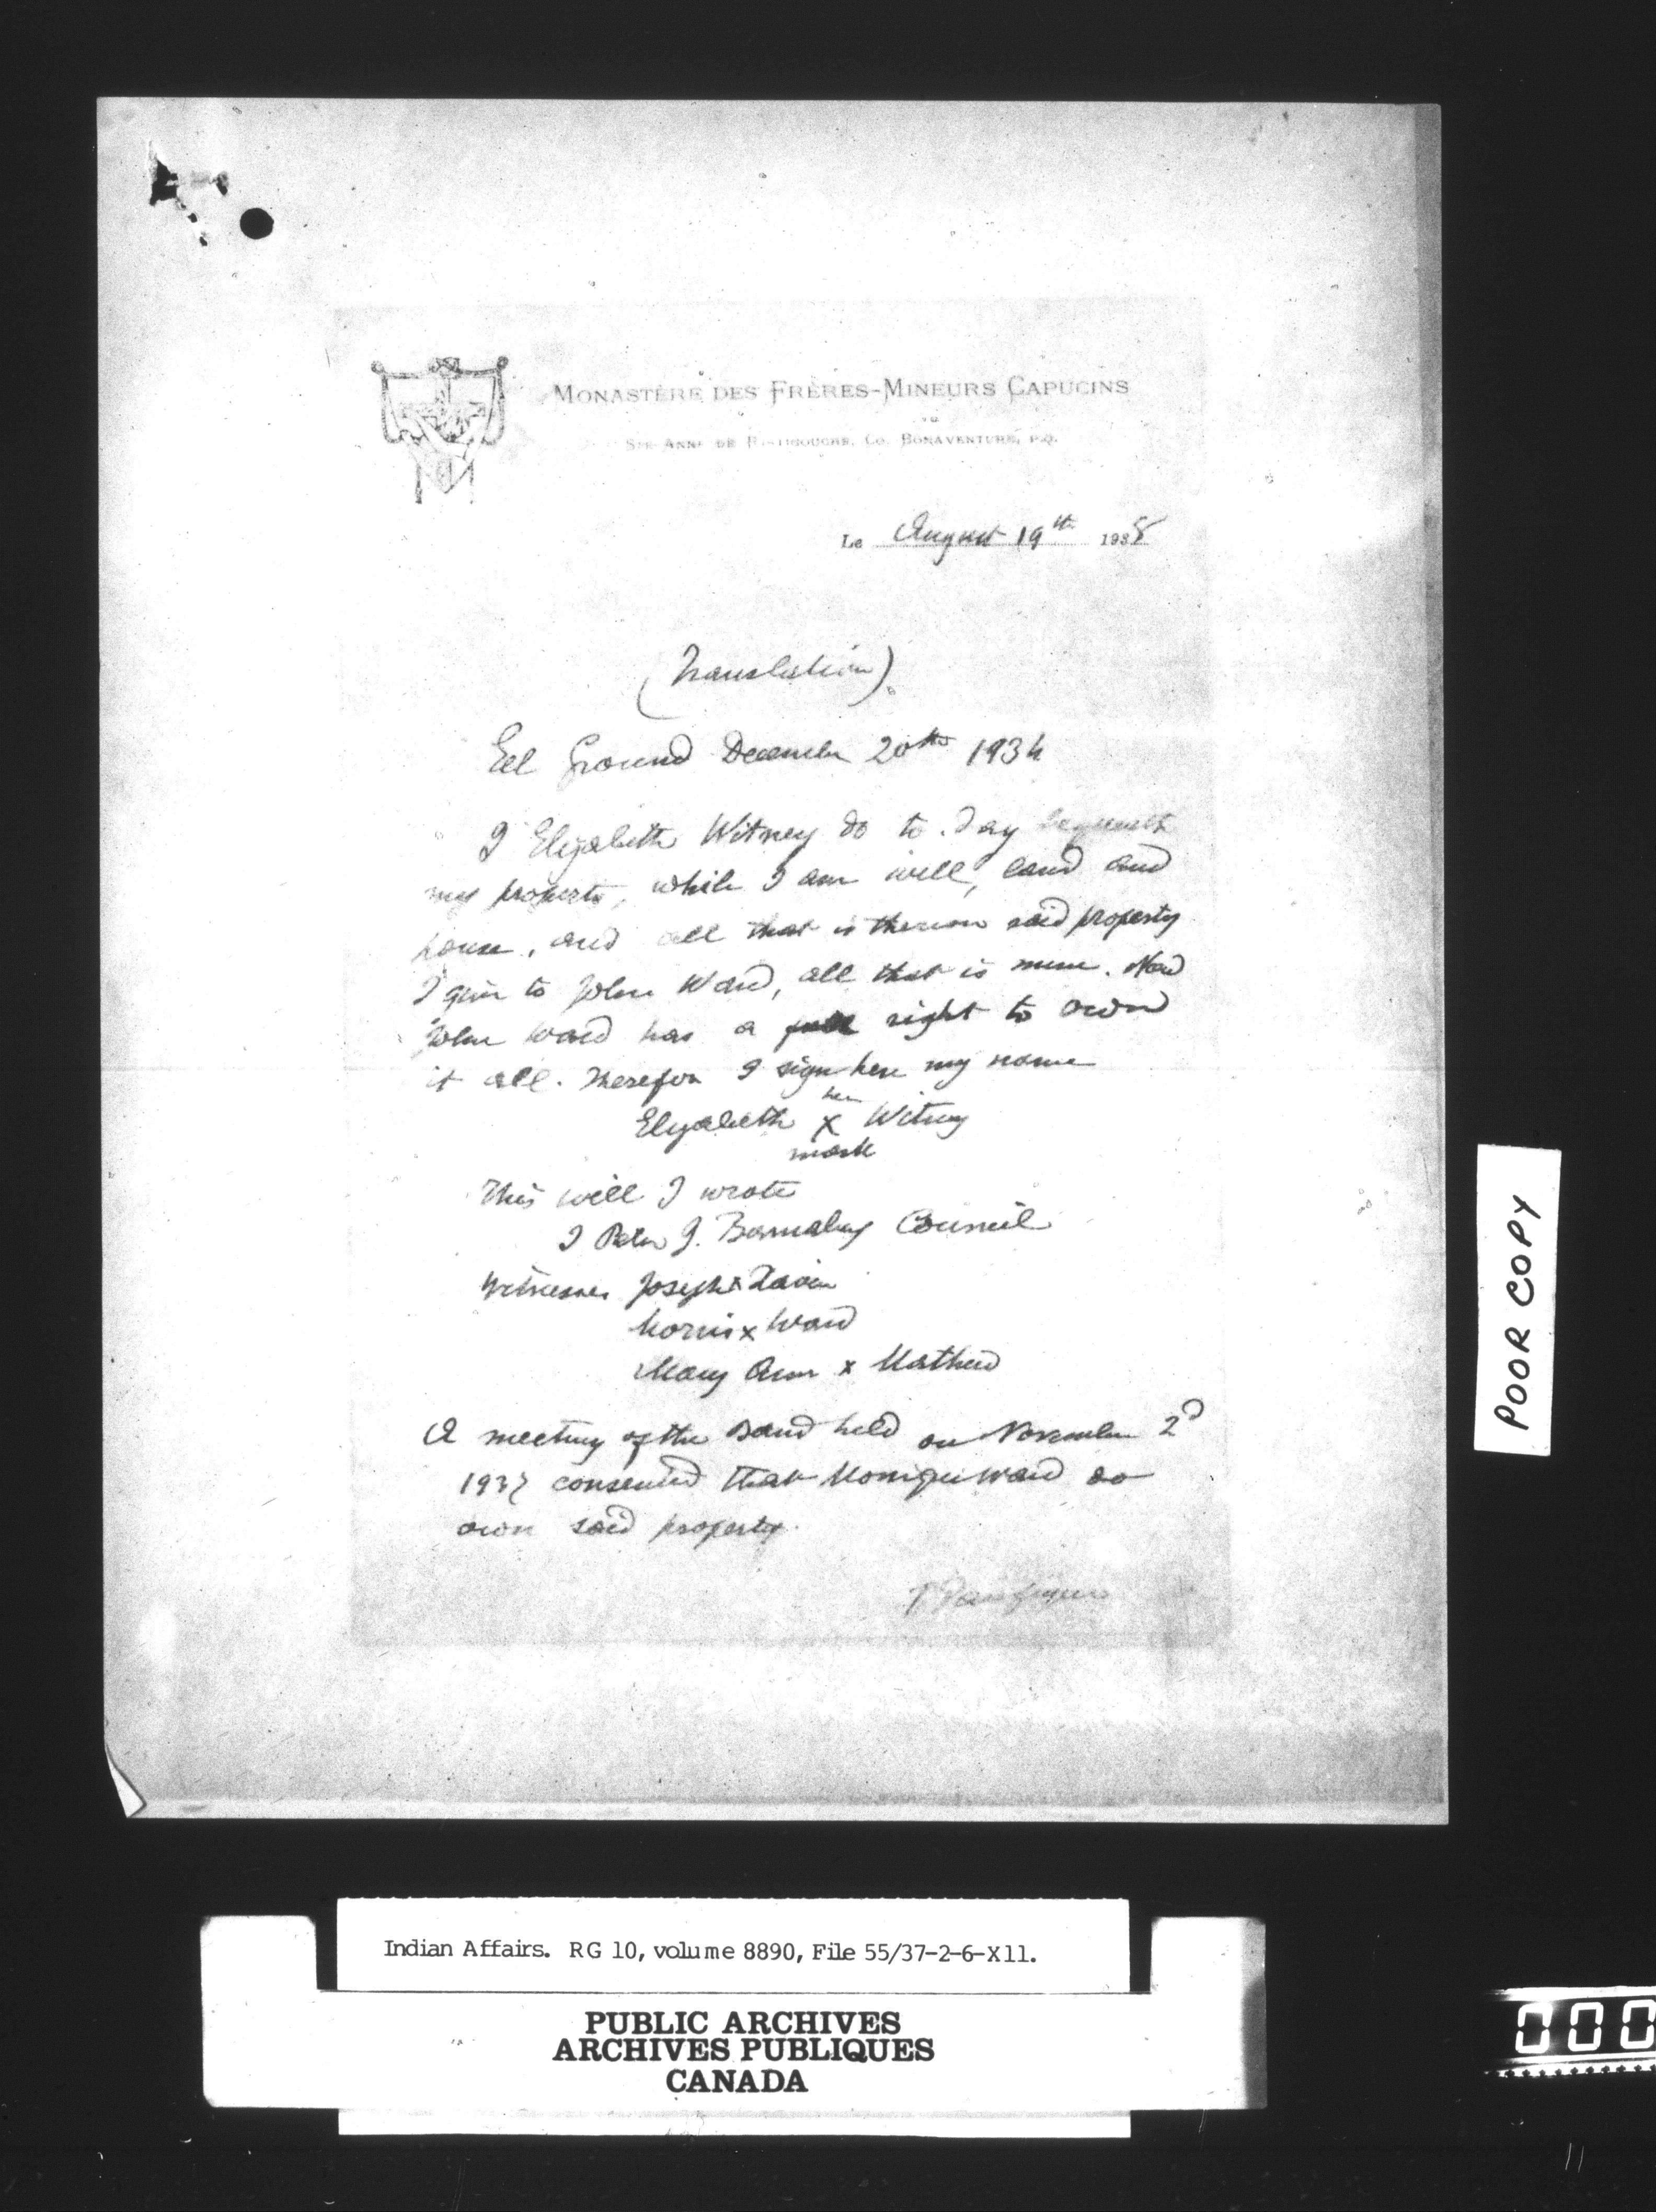 MONASTÈRE DES FRÈRES-MINEURS CAPUCINS
STE-ANNE DE RISTIGOUCHE, CO. BONAVENTURE, P.Q.
Le August 19th 1938
(Translation)
Eel Ground December 20th 1934
I Elizabeth Witney do to-day bequest
my property, while I am well, land and
house, and all that is thereon said property
I give to John Ward, all that is mine. Now
John Ward has a full right to own
it all. Therefor I sign here my name
her
Elizabeth x Witney
mark
This will I wrote
I Peter J. Barnaby Council
Witnesses Joseph x
Morris x Ward
Mary Ann x Mathew
A meeting of the Band held on November 2d
1937 consented that Monique Ward do
own said property.
POOR COPY
Indian Affairs. RG 10, volume 8890, File 55/37-2-6-X11.
PUBLIC ARCHIVES
ARCHIVES PUBLIQUES
CANADA
000